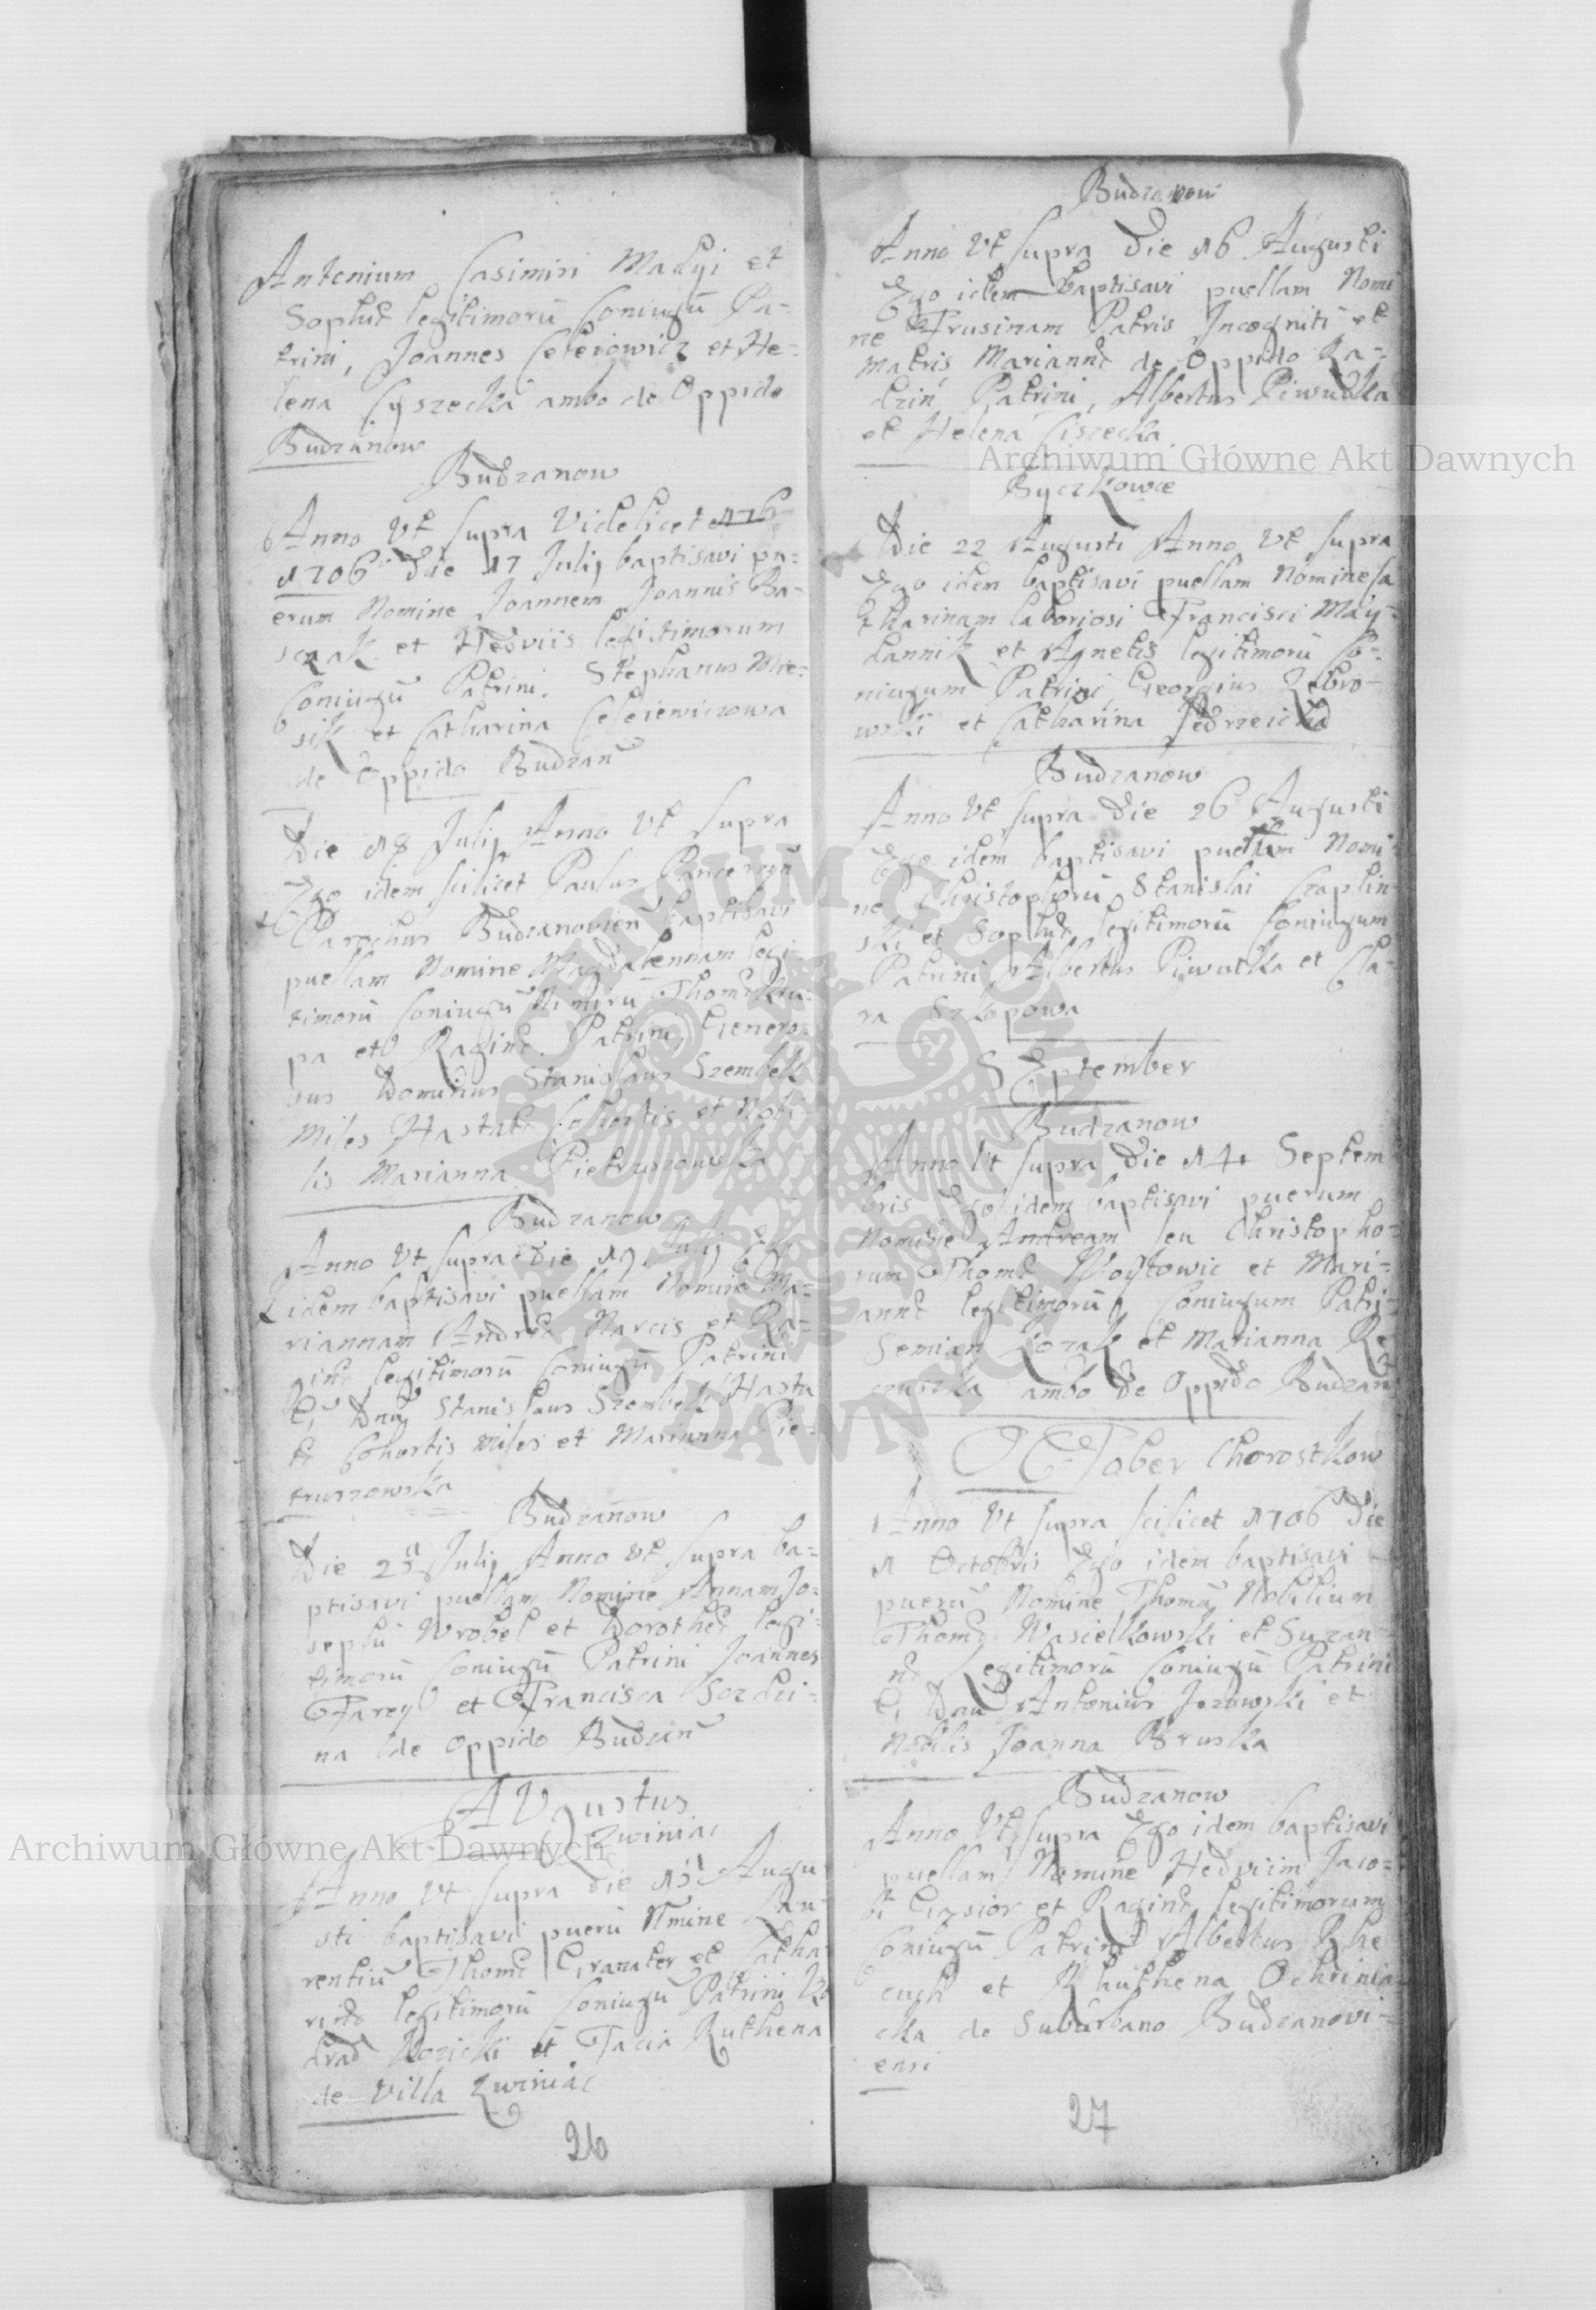 Antonium Casimiri Madyi et
Sophiæ legitimorũ Coniugũ Pa-
trini, Joannes Ceteiowicz et He-
lena Cyszecka ambo de Oppido
Budzanow
Budzanow
Anno Vt supra Videlicet
1706 die 17 Julij baptisavi pu-
erum Nomine Joannem Joannis Ba-
szczak et Hedviis legittimorum
Coniugũ Patrini. Stephanus Mie-
sik et Catharina
de Oppido Budzan
Die 18 Julij Anno Vt Supra
Ego idem scilicet Paulus
Parochus Budzanovien baptisavi
puellam Nomine Magdalennam legi-
timorũ Coniugũ Nimirũ Thomæ Kru-
pa et Raginæ. Patrini, Genero-
sus Dominus Stanislaus Szembek
Miles Hastatæ Cohortis et Nobi
lis Marianna Pietruszowska
Budzanow
Anno Vt supra die 19 Julij Ego
idem baptisavi puellam Nomine Ma-
riannam Andreæ Narcis et Ra-
ginæ legitimorũ Coniugũ Patrini
G. Dnus Stanislaus Szembek Hasta
tæ Cohortis Miles et Marianna Pie-
truszowska
Budzanow
Die 25 Julij Anno Vt supra ba-
ptisavi puellam Nomine Annam Jo-
sephi Wrobel et Dorotheæ legi-
timorũ Coniugũ Patrini Joannes
Farey et Francisca Sozdzi-
na de Oppido Budzan
AVgustus
Zwiniac
Anno Vt supra die 15 Augu
sti baptisavi puerũ Nmine Lau-
rentiũ Thomæ Granater et Catha
rinæ legitimorũ Coniugũ Patrini Ko
drad Kozicki et Tacia Ruthena
de Villa Zwiniac
26
Budzanow
Anno Vt supra Die 16 Augusti
Ego idem baptisavi puellam Nomi
ne Frusinam Patris Incogniti et
Matris Mariannæ de Oppido Ra-
dzin Patrini, Albertus Piwudka
et Helena Ciszecka
Byczkowce
Die 22 Augusti Anno Vt supra
Ego idem baptisavi puellam Nomine Ca
tharinam laboriosi Francisci May-
dannik et Agnetis legitimorũ Co-
niugum Patrini Georgius Zebro-
wski et Catharina Jędrzeicka
Budzanow
Anno Vt supra Die 26 Augusti
Ego idem baptisavi Nomi
ne Christophorũ Stanislai Czaplin
ski et Sophiæ legitimorũ Coniugum
Patrini Albertus Piwutka et Cla-
ra Szlopowa
SEptember
Budzanow
Anno Vt supra Die 14 Septem
bris Ego idem baptisavi puerum
Nomine Andream seu Christopho-
rum Thomæ Woytowic et Mari-
annæ legitimorũ Coniugum Patri-
Semian Kozak et Marianna Re
czuszka ambo de Oppido Budzan
OCTober Chorostkow
Anno Vt supra scilicet 1706 Die
1 Octobris Ego idem baptisavi
puerũ Nomine Thomã Nobilium
Thomæ Wasielkowski et Suzan-
næ Legitimorũ Coniugũ Patrini
G. Dnus Antonius Jezowski et
Nobilis Joanna Bruska
Budzanow
Anno Vt supra Ego idem baptisavi
puellam Nomine Hedviim Jaco-
bi Gzsior et Raginæ legitimorum
Coniugũ Patrini Albertus Rhe
cuch et Rhuthena Ochrinia
cka de Suburbano Budzanovi-
ensi
27
Archiwum Główne Akt Dawnych
Archiwum Główne Akt Dawnych
ARCHIWUM GŁÓWNE AKT DAWNYCH